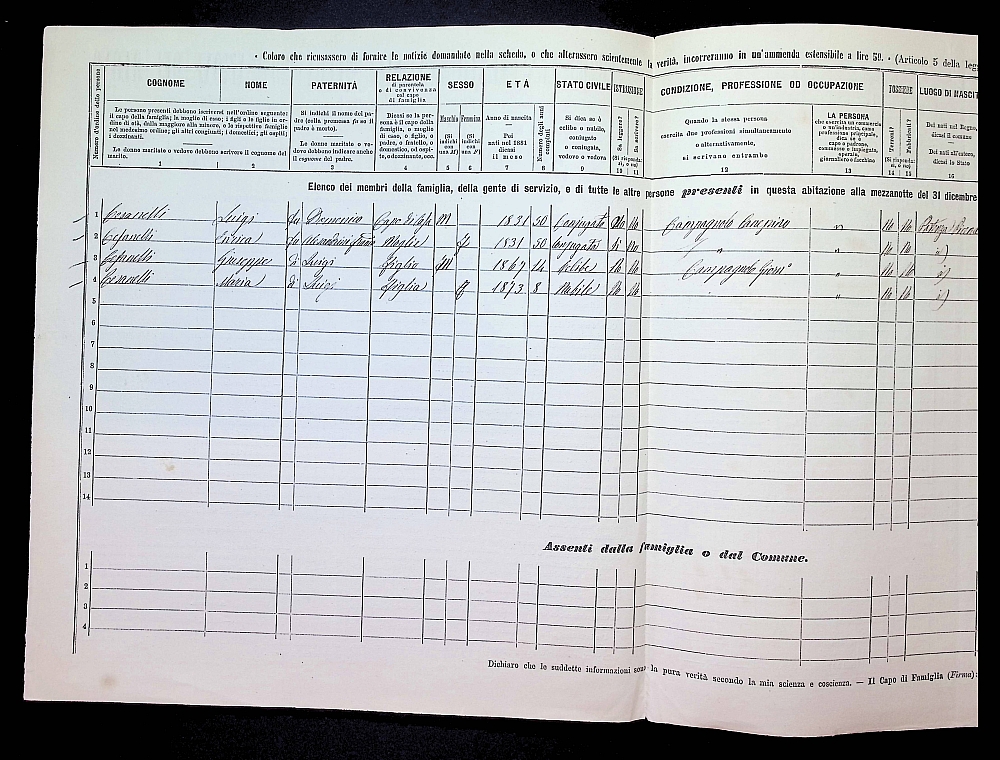 · Coloro che ricusassero di fornire le notizie domandate nella scheda, o che alterassero scientemente la verità, incorreranno in un'ammenda estensibile a lire 50. · (Articolo 5 della legg
Numero d'ordine delle persone
COGNOME
NOME
Le persone presenti debbono iscriversi nell'ordine seguente: il capo della famiglia; la moglie di esso; i figli e le figlie in ordine di età, dalla maggiore alla minore, e le rispettive famiglie nel medesimo ordine; gli altri congiunti; i domestici; gli ospiti; i dozzinanti.
Le donne maritate o vedove debbono scrivere il cognome del marito.
1 2
PATERNITÀ
Si indichi il nome del padre (colla premessa fu se il padre è morto).
Le donne maritate o vedove debbono indicare anche il cognome del padre.
3
RELAZIONE
di parentela o di convivenza col capo di famiglia
Dicasi se la persona è il capo della famiglia, o moglie di esso, o figlio, o padre, o fratello, o domestico, od ospite, o dozzinante, ecc.
4
SESSO
Maschio
(Si indichi con una M)
5
Femmina
(Si indichi con una F)
6
ETÀ
Anno di nascita
Pei nati nel 1881 dicasi il mese
7
Numero degli anni compiuti
8
STATO CIVILE
Si dica se è celibe o nubile, coniugato o coniugata, vedovo o vedova
9
ISTRUZIONE
Sa leggere?
Sa scrivere?
(Si risponda: sì, o no)
10 11
CONDIZIONE, PROFESSIONE OD OCCUPAZIONE
Quando la stessa persona esercita due professioni simultaneamente o alternativamente, si scrivano entrambe
12
LA PERSONA
che esercita un commercio o un'industria, come professione principale, dica se è capo o padrone, commesso o impiegato, operaio, giornaliero o facchino
13
POSSIEDE
Terreni?
Fabbricati?
(Si risponda: sì, o no)
14 15
LUOGO DI NASCIT
Dei nati nel Regno, dicasi il comune
Dei nati all'estero, dicasi lo Stato
16
Elenco dei membri della famiglia, della gente di servizio, e di tutte le altre persone presenti in questa abitazione alla mezzanotte del 31 dicembre
1 Luigi fu Domenico Capo di Casa M 1831 50 Conjugato No No
2 fu Moglie F 1831 50 Conjugata Si No " " i)
3 Giuseppe di Luigi Figlio M 1867 14 Celibe No No " No No i)
4 Maria di Luigi Figlia F 1873 8 Nubile No No " No No i)
5
6
7
8
9
10
11
12
13
14
Assenti dalla famiglia o dal Comune.
1
2
3
4
Dichiaro che le suddette informazioni sono la pura verità secondo la mia scienza e coscienza. — Il Capo di Famiglia (Firma):